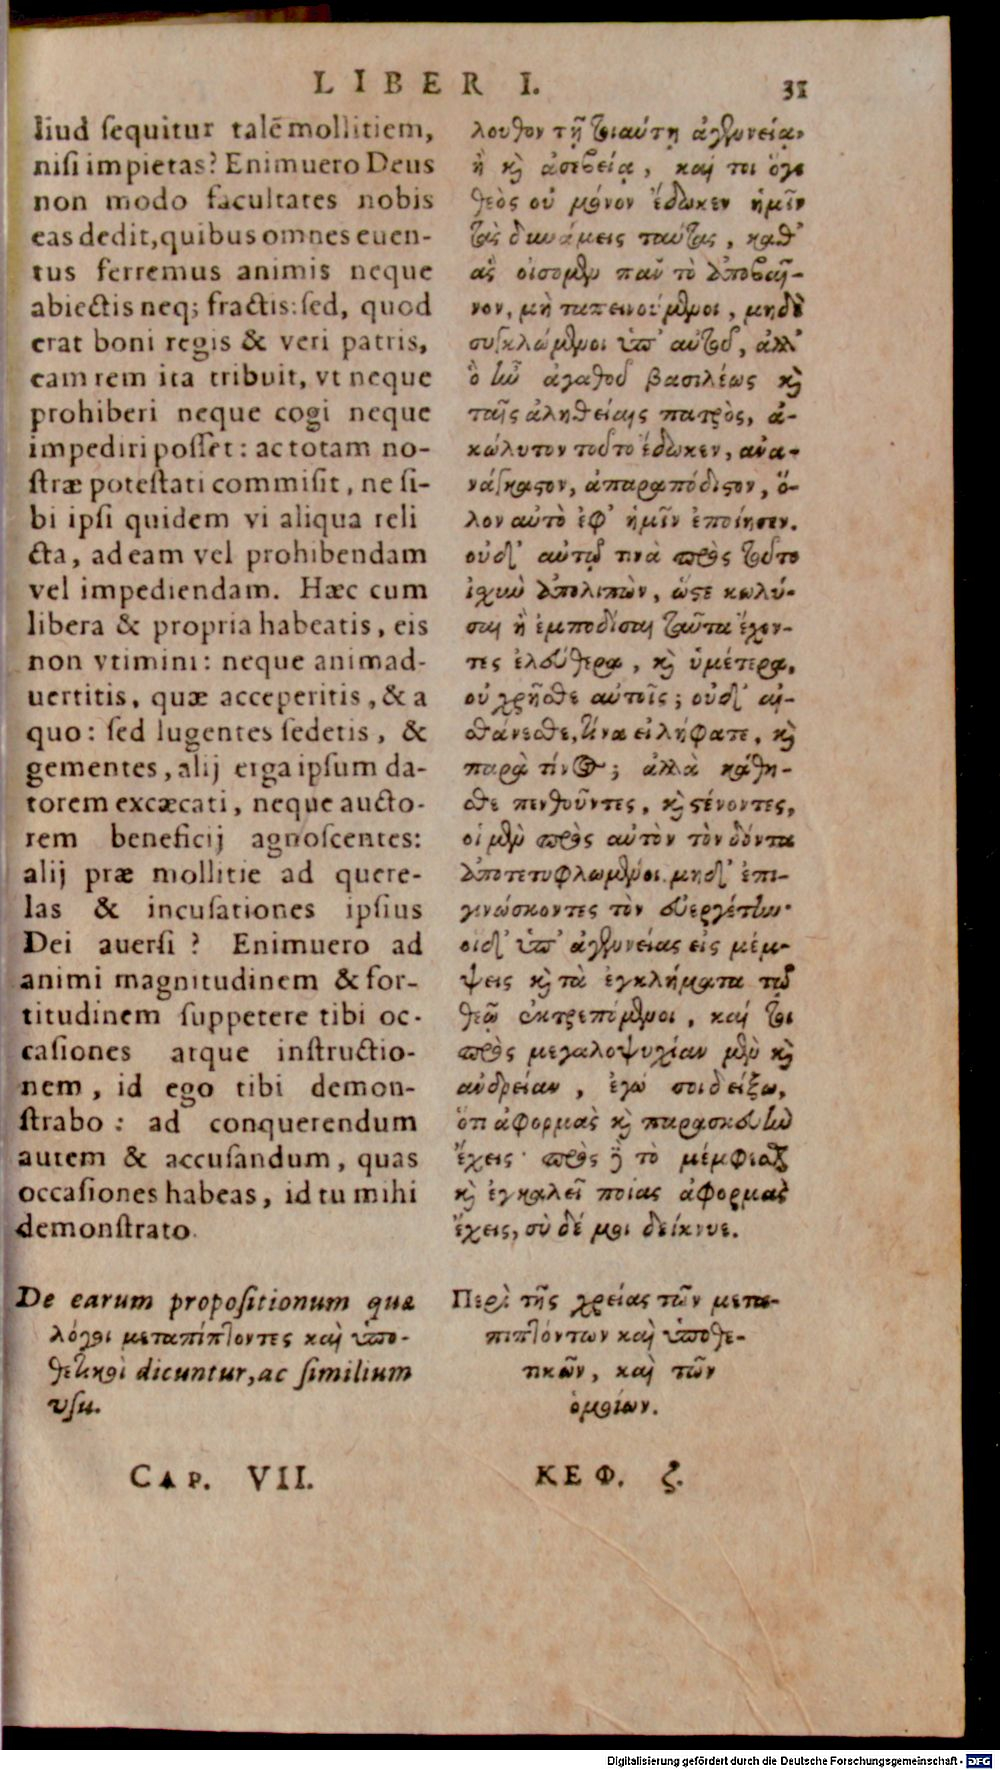 LIBER I. 31
liud sequitur talē mollitiem,
nisi impietas? Enimuero Deus
non modo facultates nobis
eas dedit, quibus omnes euen-
tus ferremus animis neque
abiectis neq; fractis: sed, quod
erat boni regis & veri patris,
eam rem ita tribuit, vt neque
prohiberi neque cogi neque
impediri posset: ac totam no-
stræ potestati commisit, ne si-
bi ipsi quidem vi aliqua reli
cta, ad eam vel prohibendam
vel impediendam. Hæc cum
libera & propria habeatis, eis
non vtimini: neque animad-
uertitis, quæ acceperitis, & a
quo: sed lugentes sedetis, &
gementes, alij erga ipsum da-
torem excæcati, neque aucto-
rem beneficij agnoscentes:
alij præ mollitie ad quere-
las & incusationes ipsius
Dei auersi? Enimuero ad
animi magnitudinem & for-
titudinem suppetere tibi oc-
casiones atque instructio-
nem, id ego tibi demon-
strabo: ad conquerendum
autem & accusandum, quas
occasiones habeas, id tu mihi
demonstrato.
De earum propositionum quæ
λόγοι μεταπίπτοντες καὶ ὑπο-
θετικοὶ dicuntur, ac similium
vsu.
CAP. VII.
λουθον τῇ τοιαύτῃ ἀγεννείᾳ,
ἢ καὶ ἀσεβείᾳ, καί τοι ὅγε
θεὸς οὐ μόνον ἔδωκεν ἡμῖν
τὰς δυνάμεις ταύτας, καθ'
ἃς οἴσομεν πᾶν τὸ ἀποβαῖ-
νον, μὴ ταπεινούμενοι, μηδὲ
συγκλώμενοι ὑπ' αὐτοῦ, ἀλλ'
ὃ ἦν ἀγαθοῦ βασιλέως καὶ
ταῖς ἀληθείαις πατρὸς, ἀ-
κώλυτον τοῦτο ἔδωκεν, ἀνα-
νάγκαστον, ἀπαραπόδιστον, ὅ-
λον αὐτὸ ἐφ' ἡμῖν ἐποίησεν.
οὐδ' αὐτῷ τινὰ πρὸς τοῦτο
ἰσχὺν ἀπολιπὼν, ὥστε κωλύ-
σαι ἢ ἐμποδίσαι ταῦτα ἔχον-
τες ἐλεύθερα, καὶ ὑμέτερα,
οὐ χρῆσθε αὐτοῖς; οὐδ' αἰ-
σθάνεσθε, τίνα εἰλήφατε, καὶ
παρὰ τίνος; ἀλλὰ κάθη-
σθε πενθοῦντες, καὶ στένοντες,
οἱ μὲν πρὸς αὐτὸν τὸν δόντα
ἀποτετυφλωμένοι. μηδ' ἐπι-
γινώσκοντες τὸν εὐεργέτην·
οἱ δ' ὑπ' ἀγεννείας εἰς μέμ-
ψεις καὶ τὰ ἐγκλήματα τῷ
θεῷ ἐκτρεπόμενοι, καί τοι
πρὸς μεγαλοψυχίαν μὲν καὶ
ἀνδρείαν, ἐγὼ σοι δείξω,
ὅτι ἀφορμὰς καὶ παρασκευὴν
ἔχεις· πρὸς δὲ τὸ μέμφεσθαι
καὶ ἐγκαλεῖν ποίας ἀφορμὰς
ἔχεις, σὺ δέ μοι δείκνυε.
Περὶ τῆς χρείας τῶν μετα-
πιπτόντων καὶ ὑποθε-
τικῶν, καὶ τῶν
ὁμοίων.
ΚΕΦ. ζ.
Digitalisierung gefördert durch die Deutsche Forschungsgemeinschaft - DFG